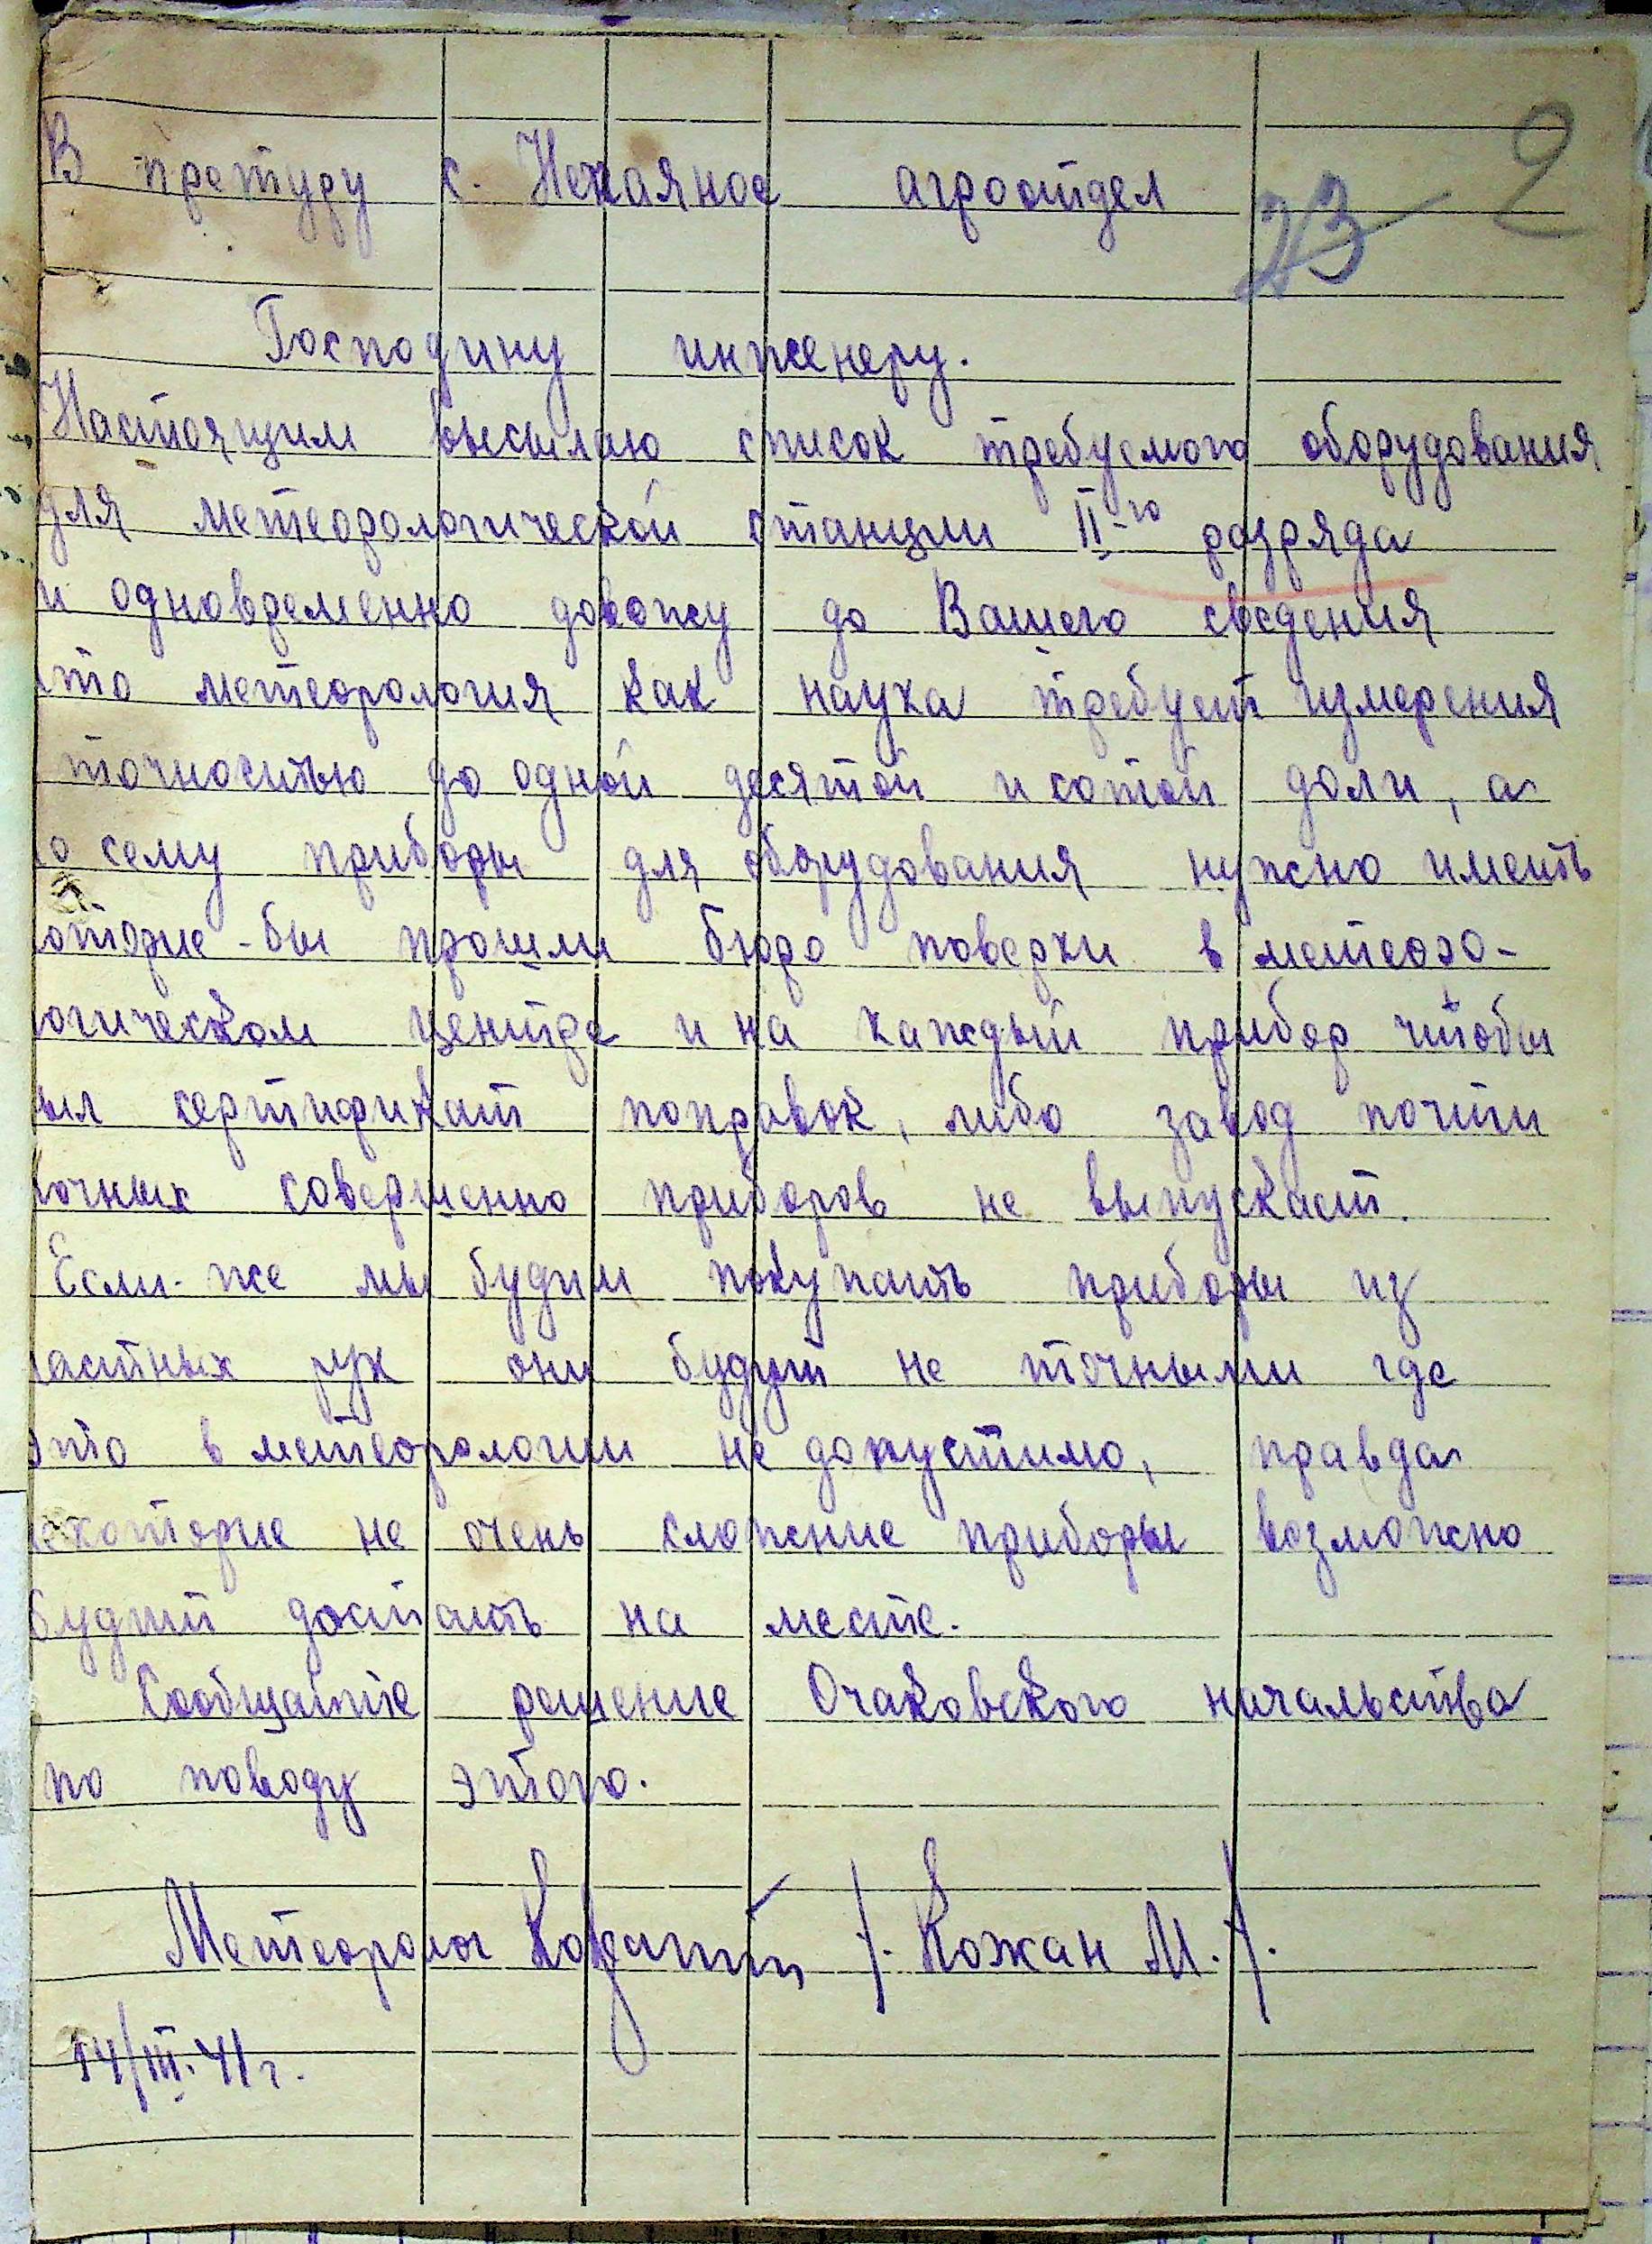 2
В претуру с. Нечаяное агроотдел
23
Господину инженеру.
Настоящим высылаю список требуемого оборудования
для метеорологической станции II-го разряда
и одновременно довожу до Вашего сведения
что метеорология как наука требует измерения
точностью до одной десятой и сотой доли, а
по сему приборы для оборудования нужно иметь
которые-бы прошли бюро поверки в метеоро-
логическом центре и на каждый прибор чтобы
был сертификат поправок, либо завод почти
точных совершенно приборов не выпускает.
Если-же мы будим покупать приборы из
частных рук они будут не точными где
это в метеорологии не допустимо, правда
некоторые не очень сложные приборы возможно
будит достать на месте.
Сообщайте решение Очаковского начальства
по поводу этого.
Метеоролог /. Кожан М./.
14/III.41г.